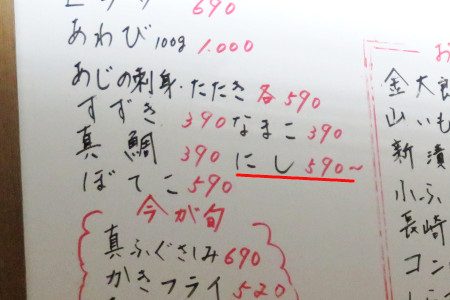 690
あわび 100g 1.000
あじの刺身・たたき 各590
すずき 390 なまこ 390
真鯛 390 にし 590~
ぼてこ 590
今が旬
真ふぐさしみ 690
かきフライ 520
お
金太郎
山いも
新漬
小ふ
長崎
コン